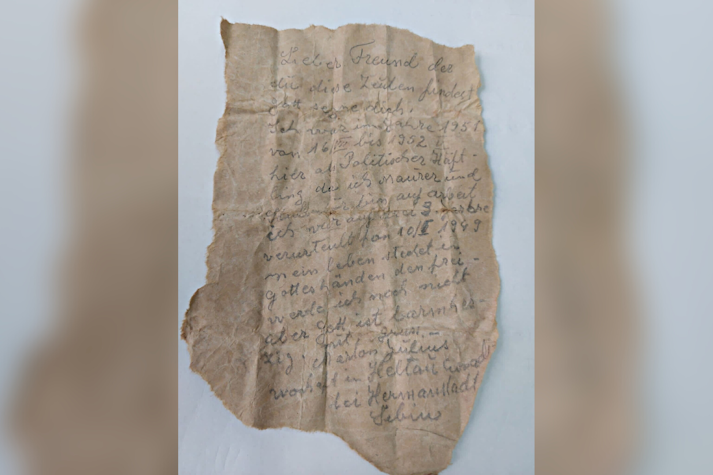 Lieber Freund der
du diese Zeilen findest
Gott segne dich.
Ich war im Jahre 1951
von 16 bis 1952
hier als Politischer Häft-
ling da ich Maurer und
auf arbeit
ich war auf 3
verurteilt von 10/II 1949
mein leben stehet in
gotteshänden den frei
werde ich noch nicht
aber gott ist barmher-
gut
Julius
wohnhaft in Heltau
bei Hermannstadt
Sibiu